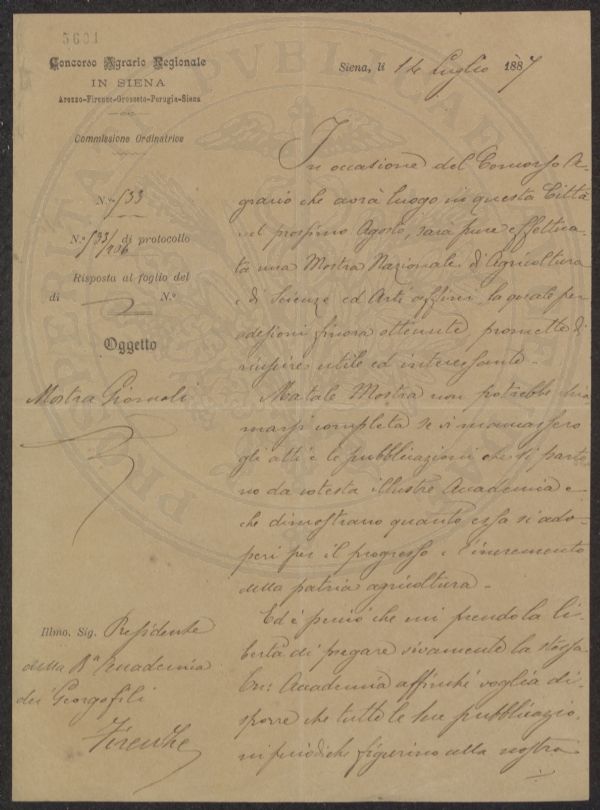 5601
Concorso Agrario Regionale
IN SIENA
Arezzo-Firenze-Grosseto-Perugia-Siena
Commissione Ordinatrice
N.º 533
N.º 533/206 di protocollo
Risposta al foglio del
di N.º
Oggetto
Mostra Giornali
Illmo. Sig. Presidente
della Rª Accademia
dei Georgofili
Firenze
Siena, li 14 Luglio 1887
In occasione del Concorso A-
grario che avrà luogo in questa Città
nel prossimo Agosto, sarà pure effettua-
ta una Mostra Nazionale di Agricoltura
e di Scienze ed Arti affini, la quale per
adesioni finora ottenute promette di
riuscire utile ed interessante.
Ma tale Mostra non potrebbe chia
marsi completa se vi mancassero
gli atti e le pubblicazioni che si parto
no da cotesta illustre Accademia e
che dimostrano quanto essa si ado-
peri per il progresso e l'incremento
della patria agricoltura.
Ed è perciò che mi prendo la li-
bertà di pregare vivamente la stessa
Accademia affinchè voglia di-
sporre che tutte le sue pubblicazio-
ni periodiche figurino alla nostra
PVBLICAE